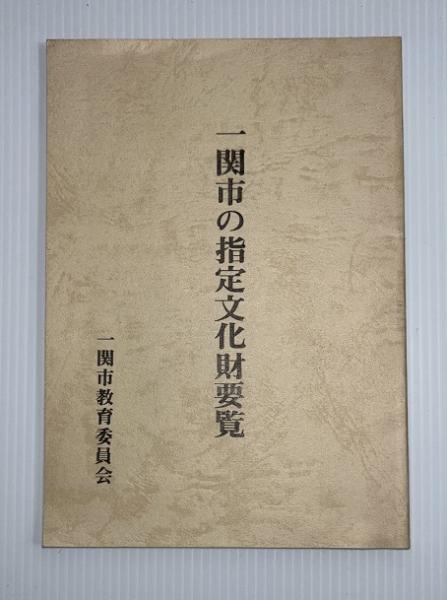 一関市の指定文化財要覧
一関市教育委員会